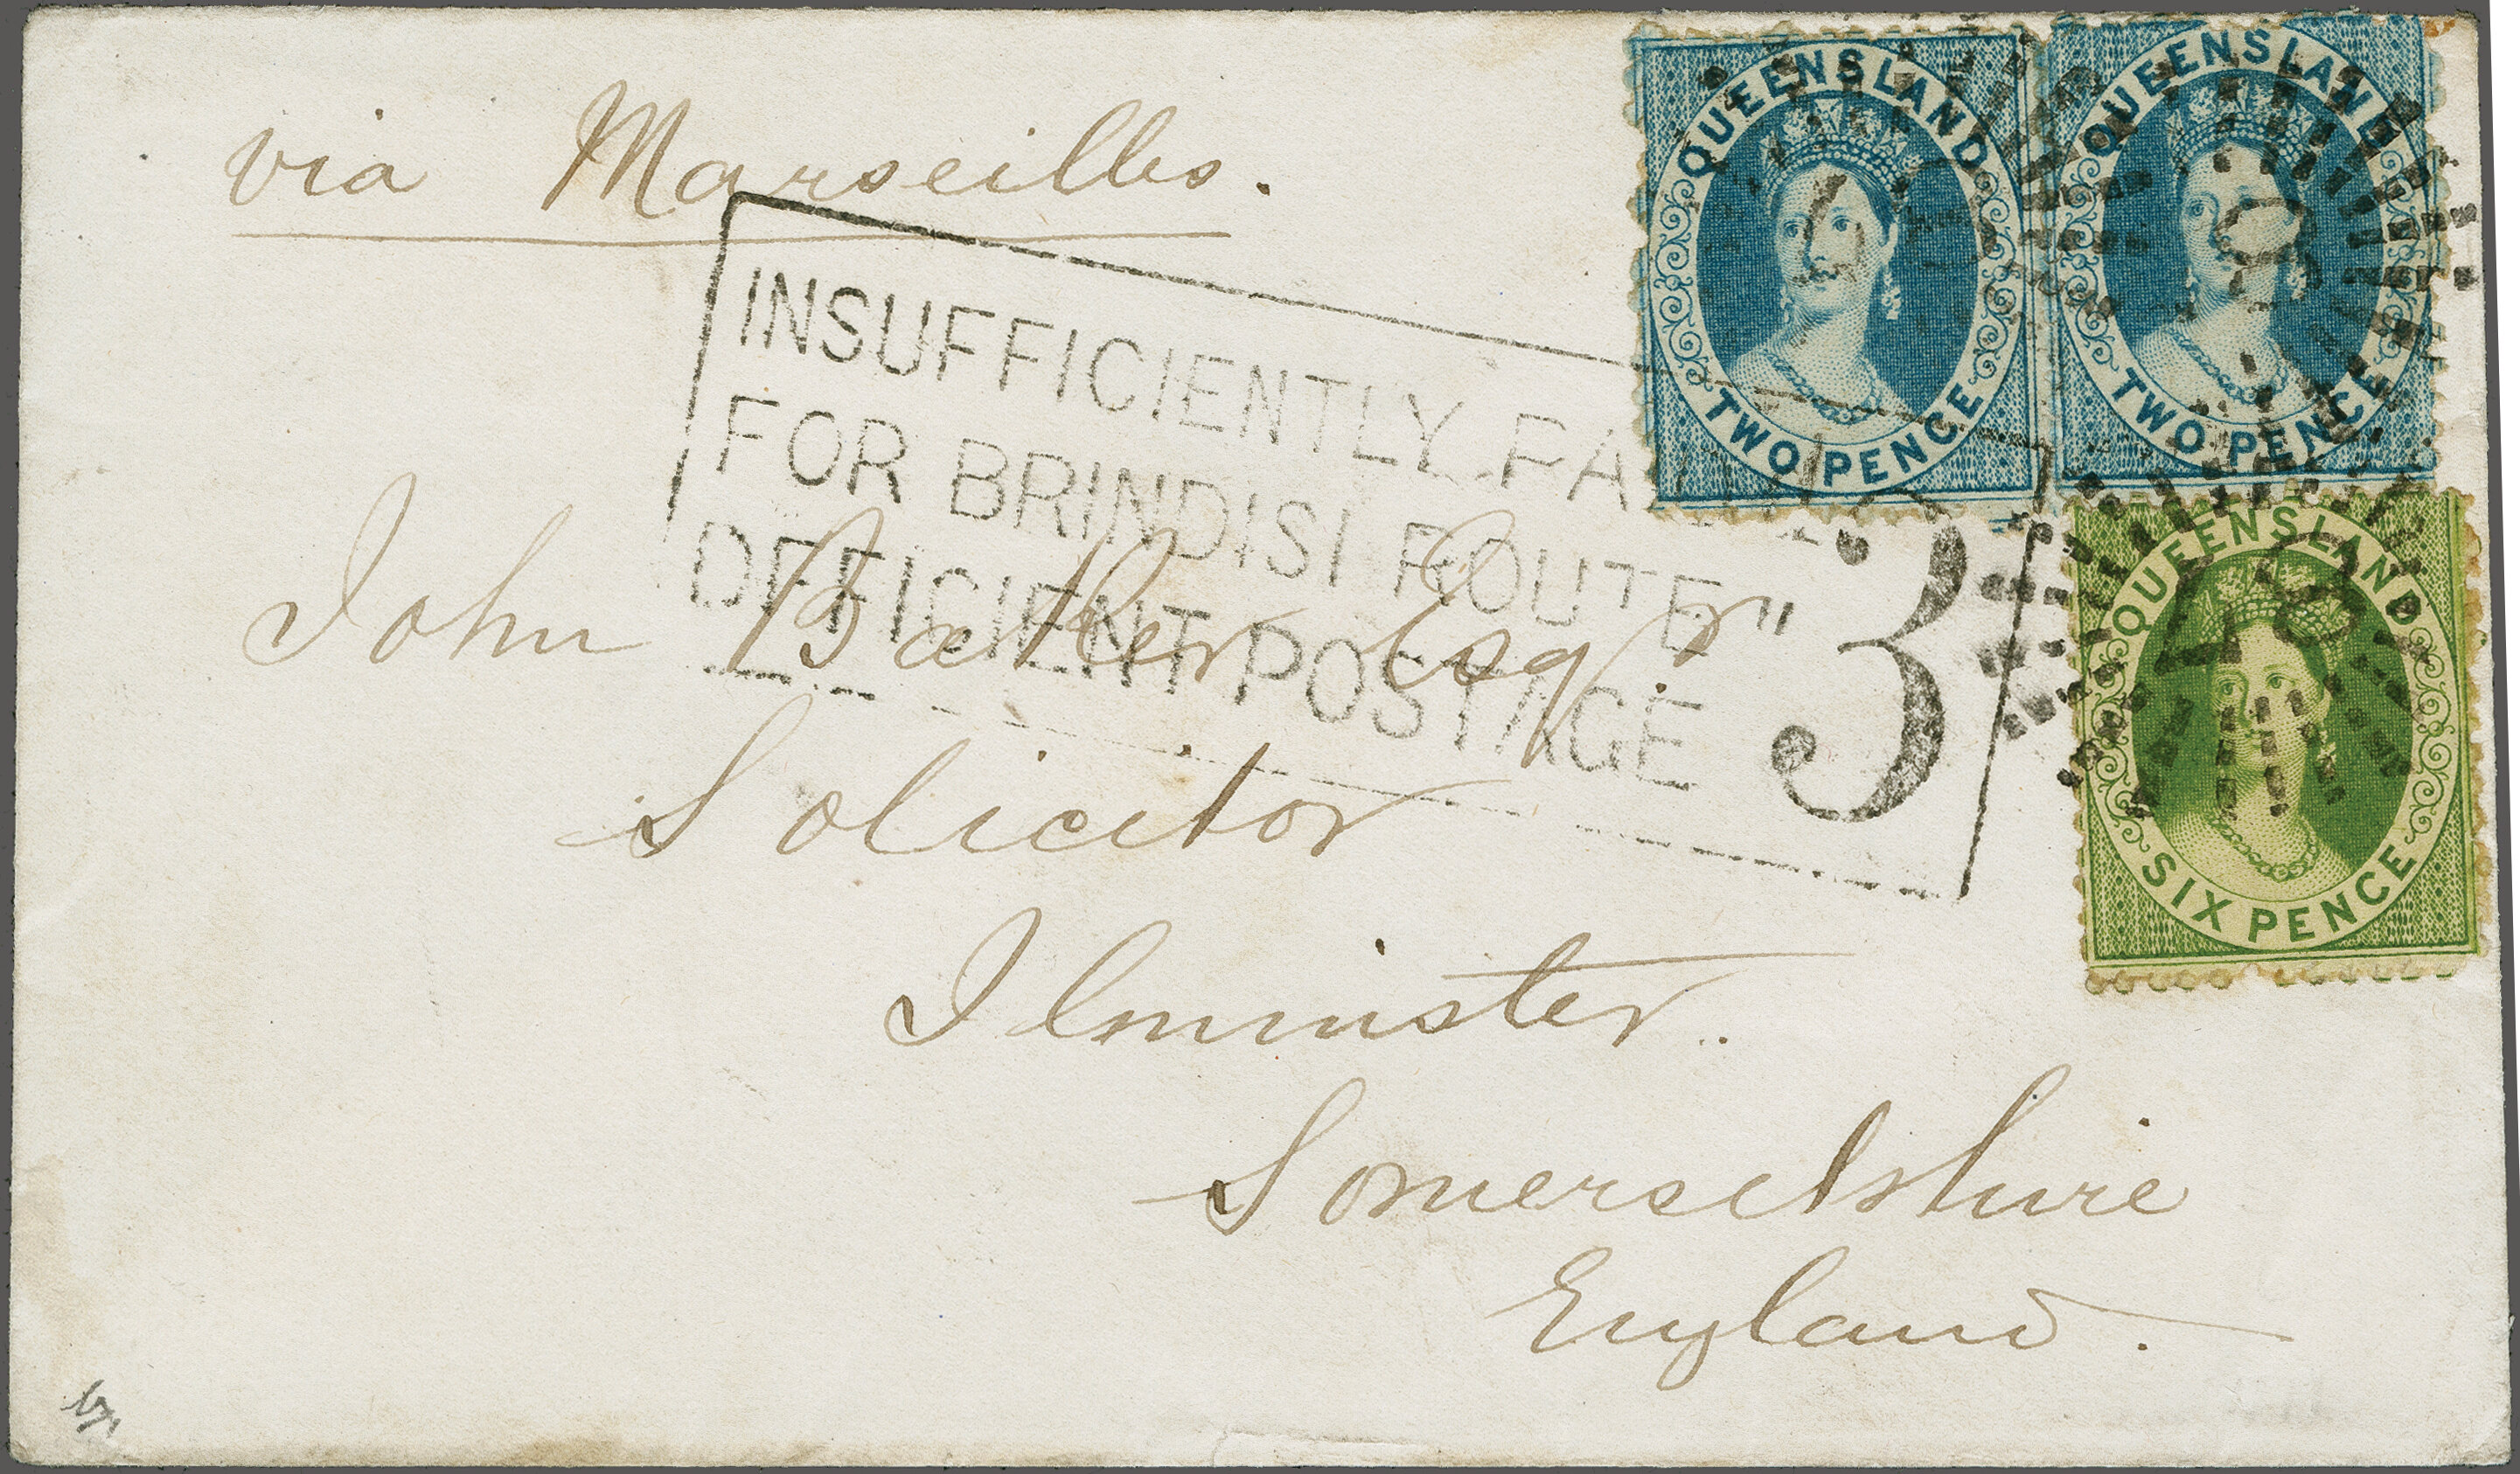 via Marseilles.
QUEENSLAND
TWO PENCE
QUEENSLAND
TWO PENCE
INSUFFICIENTLY PA
FOR BRINDISI ROUTE"
DEFICIENT POSTAGE 3
QUEENSLAND
SIX PENCE
John Baker Esqr
Solicitor
Ilminster.
Somersetshire
England.